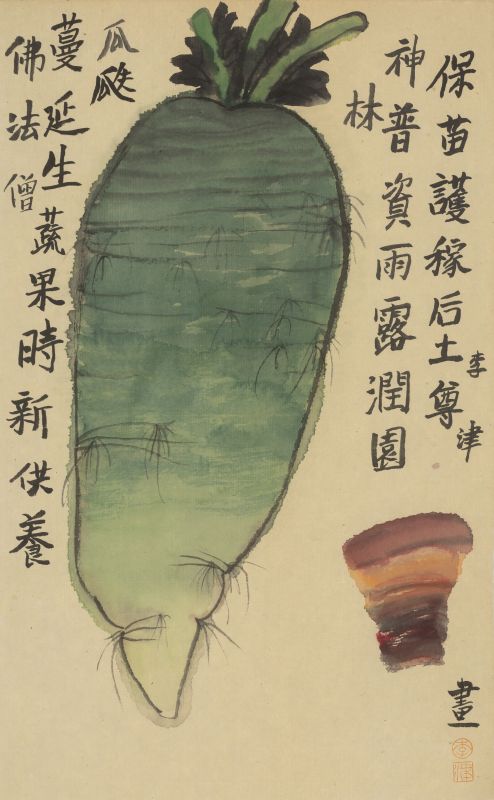 保苗護稼后土尊
神普資雨露潤園
林
瓜瓞
蔓延生蔬果時新供養
佛法僧
李津
畫
李津